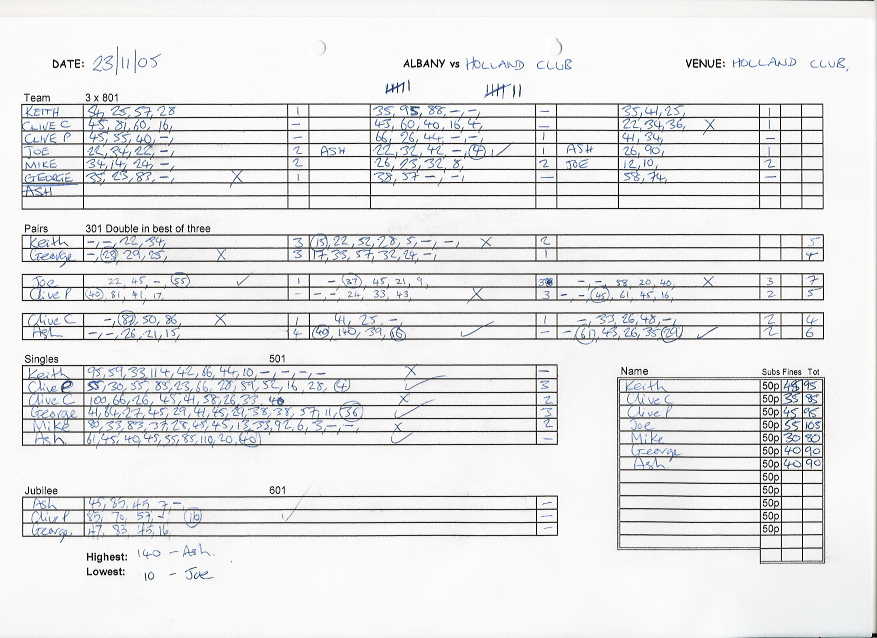 DATE: 23/11/05 ALBANY vs HOLLAND CLUB VENUE: HOLLAND CLUB.
Team 3 x 801
KEITH 54, 25, 57, 28 1 35, 95, 88, -, -, - 35, 41, 25, 1
CLIVE C 45, 81, 60, 16, - 45, 60, 40, 16, 4, - 22, 34, 36, X
CLIVE P 45, 55, 40, -, 66, 26, 44, -, -, 1 41, 34, -
JOE 22, 34, 22, -, 2 ASH 22, 32, 42, -, (4) ✓ 1 ASH 26, 90, 1
MIKE 34, 14, 24, -, 2 26, 23, 32, 8, 2 JOE 12, 10, 2
GEORGE 35, 23, 83, -, X 1 38, 57 -, -, - 58, 74, -
ASH
Pairs 301 Double in best of three
Keith -, -, 22, 34, 3 (15), 22, 52, 28, 5, -, -, X 2 5
George -, (28) 29, 25, X 3 17, 33, 57, 32, 24, -, 1 4
Joe 22, 45, - (55) ✓ 1 - (37), 45, 21, 9, -, -, 58, 20, 40, X 3 7
Clive P (40), 81, 41, 17, - -, -, 24, 33, 43, X 3 -, -, (45), 61, 45, 16, 2 5
Clive C -, (82), 50, 86, X 1 41, 25, - 1 -, 33, 26, 48, -, 2 4
Ash -, -, 26, 21, 15, 4 (40), 140, 39, (66) ✓ - - (61), 43, 26, 35 (29) ✓ 2 6
Singles 501
Keith 95, 59, 33, 114, 42, 66, 44, 10, -, -, -, - X -
Clive P 55, 30, 55, 85, 23, 66, 28, 59, 52, 16, 28, (4) ✓ 3
Clive C 100, 66, 26, 45, 41, 58, 26, 33, 40 X 2
George 41, 64, 27, 45, 29, 41, 45, 21, 38, 38, 57, 11, (36) ✓ 3
Mike 80, 33, 83, 37, 28, 45, 45, 13, 33, 92, 6, 3, -, -, X 2
Ash 61, 45, 40, 45, 55, 85, 110, 20, (40) ✓ -
Name Subs Fines Tot
Keith 50p 45 95
Clive C 50p 35 85
Clive P 50p 45 95
Joe 50p 55 105
Mike 50p 30 80
George 50p 40 90
Ash 50p 40 90
50p
50p
50p
50p
50p
Jubilee 601
Ash 45, 85, 45, 7, -, -
Clive P 85, 70, 57, -, (10) ✓ -
George 47, 83, 45, 16, -
Highest: 140 - Ash.
Lowest: 10 - Joe